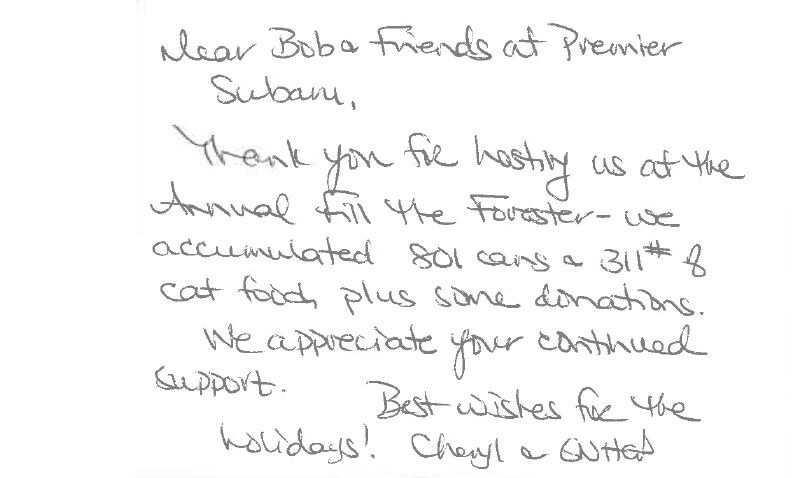 Dear Bob & Friends at Premier
Subaru,
Thank you for hosting us at the
Annual Fill the Forester - we
accumulated 801 cans & 311# of
cat food, plus some donations.
We appreciate your continued
support.
Best wishes for the
holidays! Cheryl &